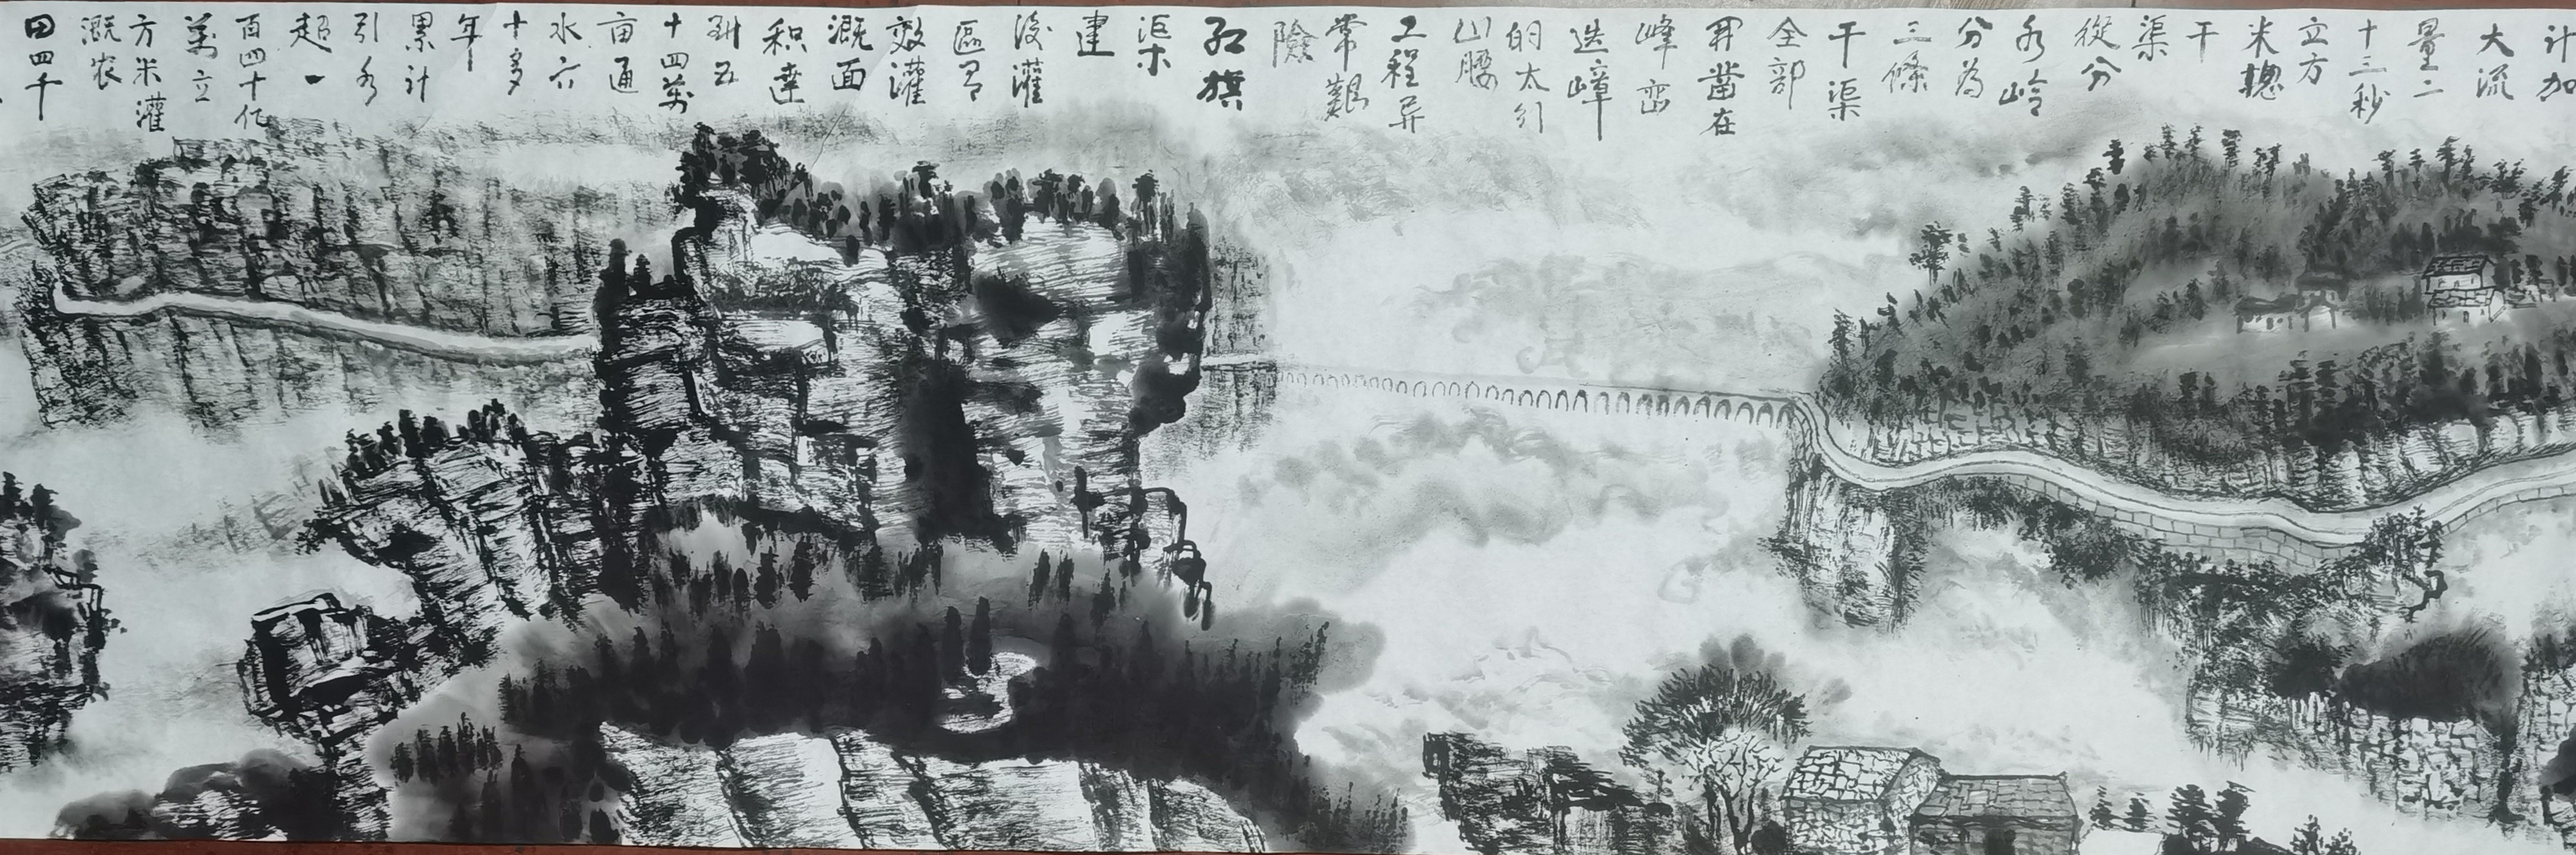 计加
大流
量二
十三秒
立方
米总
干
渠
從分
水岭
分為
三條
干渠
全部
開凿在
峰峦
迭嶂
的太行
山腰
工程异
常艱
險
红旗
渠
建
後灌
區有
效灌
溉面
积達
到五
十四萬
亩通
水六
十多
年
累计
引水
超一
百四十亿
萬立
方米灌
溉农
田四千